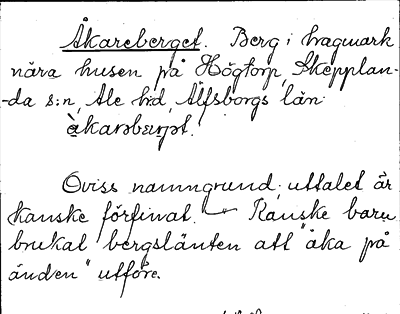 Åkareberget. Berg i hagmark
nära husen på Högtorp, Skepplan-
-da s:n, Ale hd, Älfsborgs län
Oviss namngrund; uttalet är
kanske förfinat. — Kanske barn
brukat bergslänten att "åka på
änden" utföre.